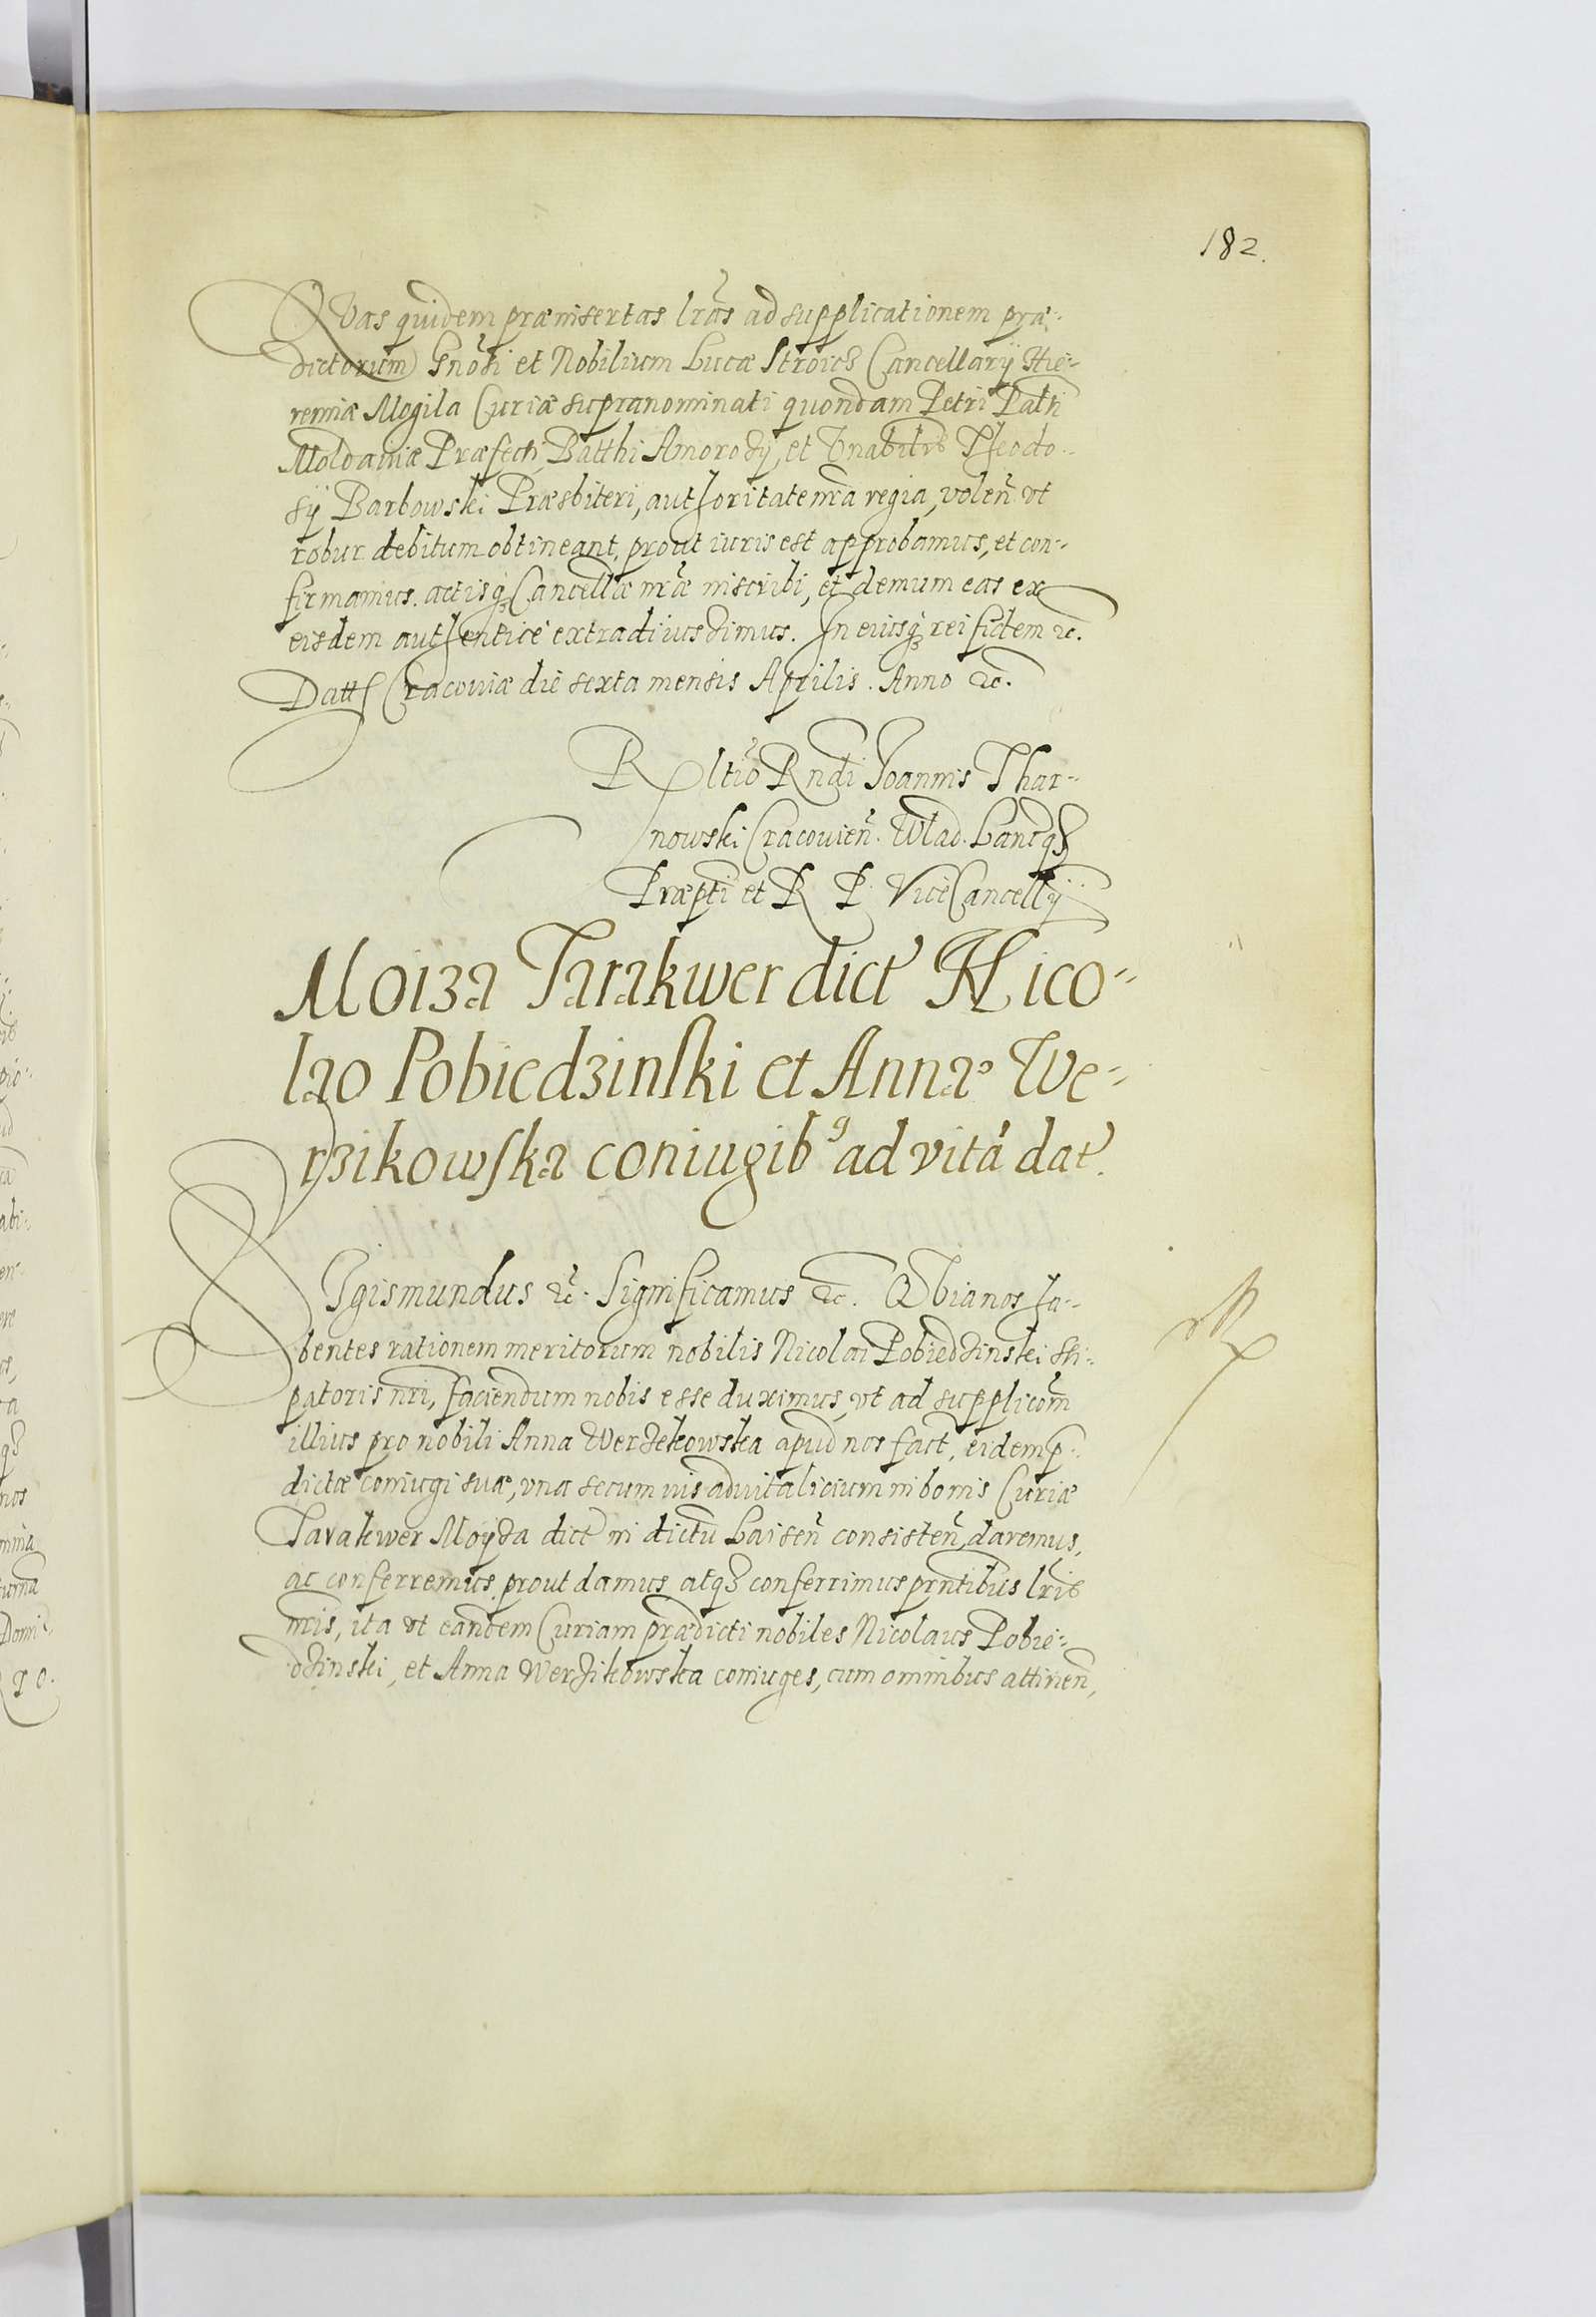 182.
QVas quidem præinsertas lrãs ad supplicationem præ-
dictorum Gnõsi et Nobilium Lucæ Stroicz Cancellarij Hie-
remiæ Mogila Curiæ supranominati quondam Petri Palti
Moldaviæ Præfecti, Batthi Amorozÿ, et Vnabilis Theodo-
sij Barbowski Præsbiteri, authoritate nr̃a regia, volen̄ vt
robur debitum obtineant, prout iuris est approbamus, et con-
firmamus. actisq; Cancellæ nr̃æ inscribi, et demum eas ex
eisdem authentice extradi iussimus. In cuius rei fidem ꝛc.
Datt Cracoviæ die sexta mensis Aprilis. Anno ꝛc.
Rltiõ Rndi Joannis Thar-
nowski Cracovien̄. Wlad. Lancq
Præpti et R P. ViceCancellij
Moiza Tarakwer dict Nico-
lao Pobiedzinski et Annæ We-
rzikowska coniugib9 ad vitã dat.
SIgismundus ꝛc. Significamus ꝛc. QVia nos ha-
bentes rationem meritorum nobilis Nicolai Pobiedzinski sti-
patoris nri, faciendum nobis esse duximus, vt ad supplicom̄
illius pro nobili Anna Werzekowska apud nos fact, eidem p-
dictæ coniugi suæ, vna secum ius advitalicium in bonis Curiæ
Tarakwer Moyza dict in dictu Laisen̄ consisten̄, daremus,
ac conferremus, prout damus atq conferrimus prntibus lris
nris, ita vt eandem Curiam prædicti nobiles Nicolaus Pobie-
dzinski, et Anna Werzikowska coniuges, cum omnibus attinen̄,